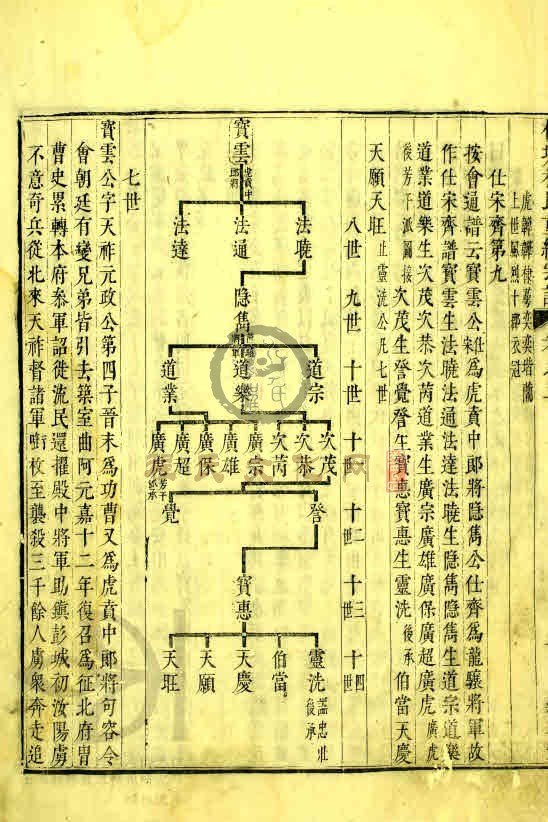 虎韓韓棣蕚奕奕塔蘭
上世風烈十郡衣冠
仕宋齊第九
按會通譜云寶雲公仕宋為虎賁中郎將隱雋公仕齊為龍驤將軍故
作仕宋齊譜寶雲生法曉法通法達法曉生隱雋隱雋生道宗道樂
道業道樂生次茂次恭次芮道業生廣宗廣雄廣保廣超廣虎廣虎
後芳子派圖接次茂生督覺督生寶惠寶惠生靈洗後承伯當天慶
天願天旺止靈洗公凡七世
八世 九世 十世 十一世 十二世 十三世 十四世
寶雲虎賁中郎將
法曉 法通 法達
隱雋
道宗 道樂 道業
次茂 次恭 次芮 廣宗 廣雄 廣保 廣超 廣虎芳子派承
督 覺
寶惠
靈洗諡忠壯後承 伯當 天慶 天願 天旺
七世
寶雲公字天祚元政公第四子晉末為功曹又為虎賁中郎將句容令
會朝廷有變兄弟皆引去築室曲阿元嘉十二年復召為征北府冑
曹史累轉本府叅軍詔從流民還擢殿中將軍助鎮彭城初汝陽虜
不意奇兵從北來天祚督諸軍啣枚至襲殺三千餘人虜衆奔走追